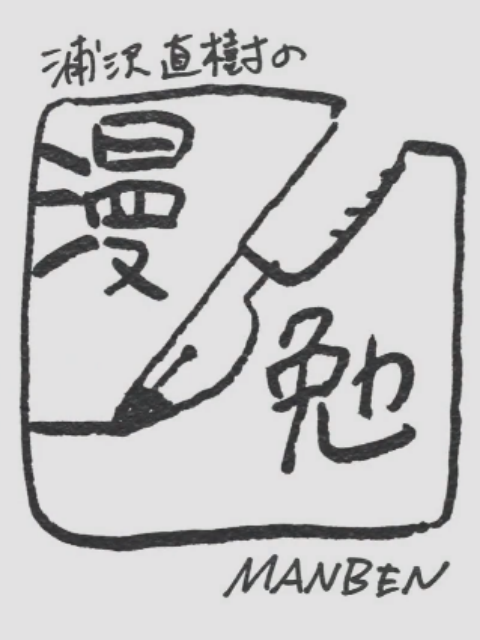 浦沢直樹の
漫
勉
MANBEN